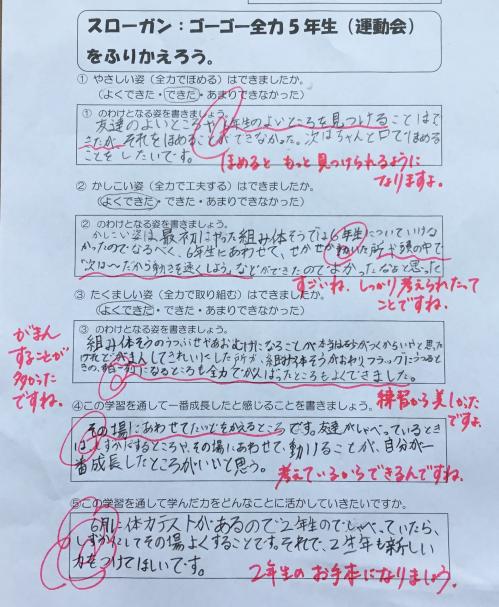 スローガン：ゴーゴー全力５年生（運動会）
をふりかえろう。
① やさしい姿（全力でほめる）はできましたか。
（よくできた・できた・あまりできなかった）
① のわけとなる姿を書きましょう。
友達のよいところや6年生のよいところを見つけることはで
きたが、それをほめることができなかった。次はちゃんと口でほめる
ことをしたいです。
ほめると もっと見つけられるように
なりますよ。
② かしこい姿（全力で工夫する）はできましたか。
（よくできた・できた・あまりできなかった）
② のわけとなる姿を書きましょう。
かしこい姿は、最初にやった組み体そうでは6年生についていけな
かったのでなるべく、6年生にあわせて、せかせか動いた所や頭の中で
次は〜だから動きを速くしよう。などができたのでよかったなあと思った
すごいね、しっかり考えられたって
ことですね。
③ たくましい姿（全力で取り組む）はできましたか。
（よくできた・できた・あまりできなかった）
③ のわけとなる姿を書きましょう。
組み体そうのうつぶせやあおむけになることが本当はすながつくからいやと思った
けれどがまんしてきれいにした所が、組み体そうがおわりフラッグにうつると
きの、になるところも全力でがんばったところもよくできました。
がまん
することが
多かった
ですね。
練習から美しかった
ですよ。
④この学習を通して一番成長したと感じることを書きましょう。
その場にあわせてたいどをかえるところです。友達がしゃべっているとき
はしずかにするところや、その場にあわせて、動けることが、自分が一
番成長したところがいいと思う。
考えているからできるんですね。
⑤この学習を通して学んだ力をどんなことに活かしていきたいですか。
6月に体力テストがあるので2年生のでしゃべっていたら、
しずかにしてその場よくすることです。それで、2年生も新しい
力をつけてほしいです。
2年生の お手本になりましょう。